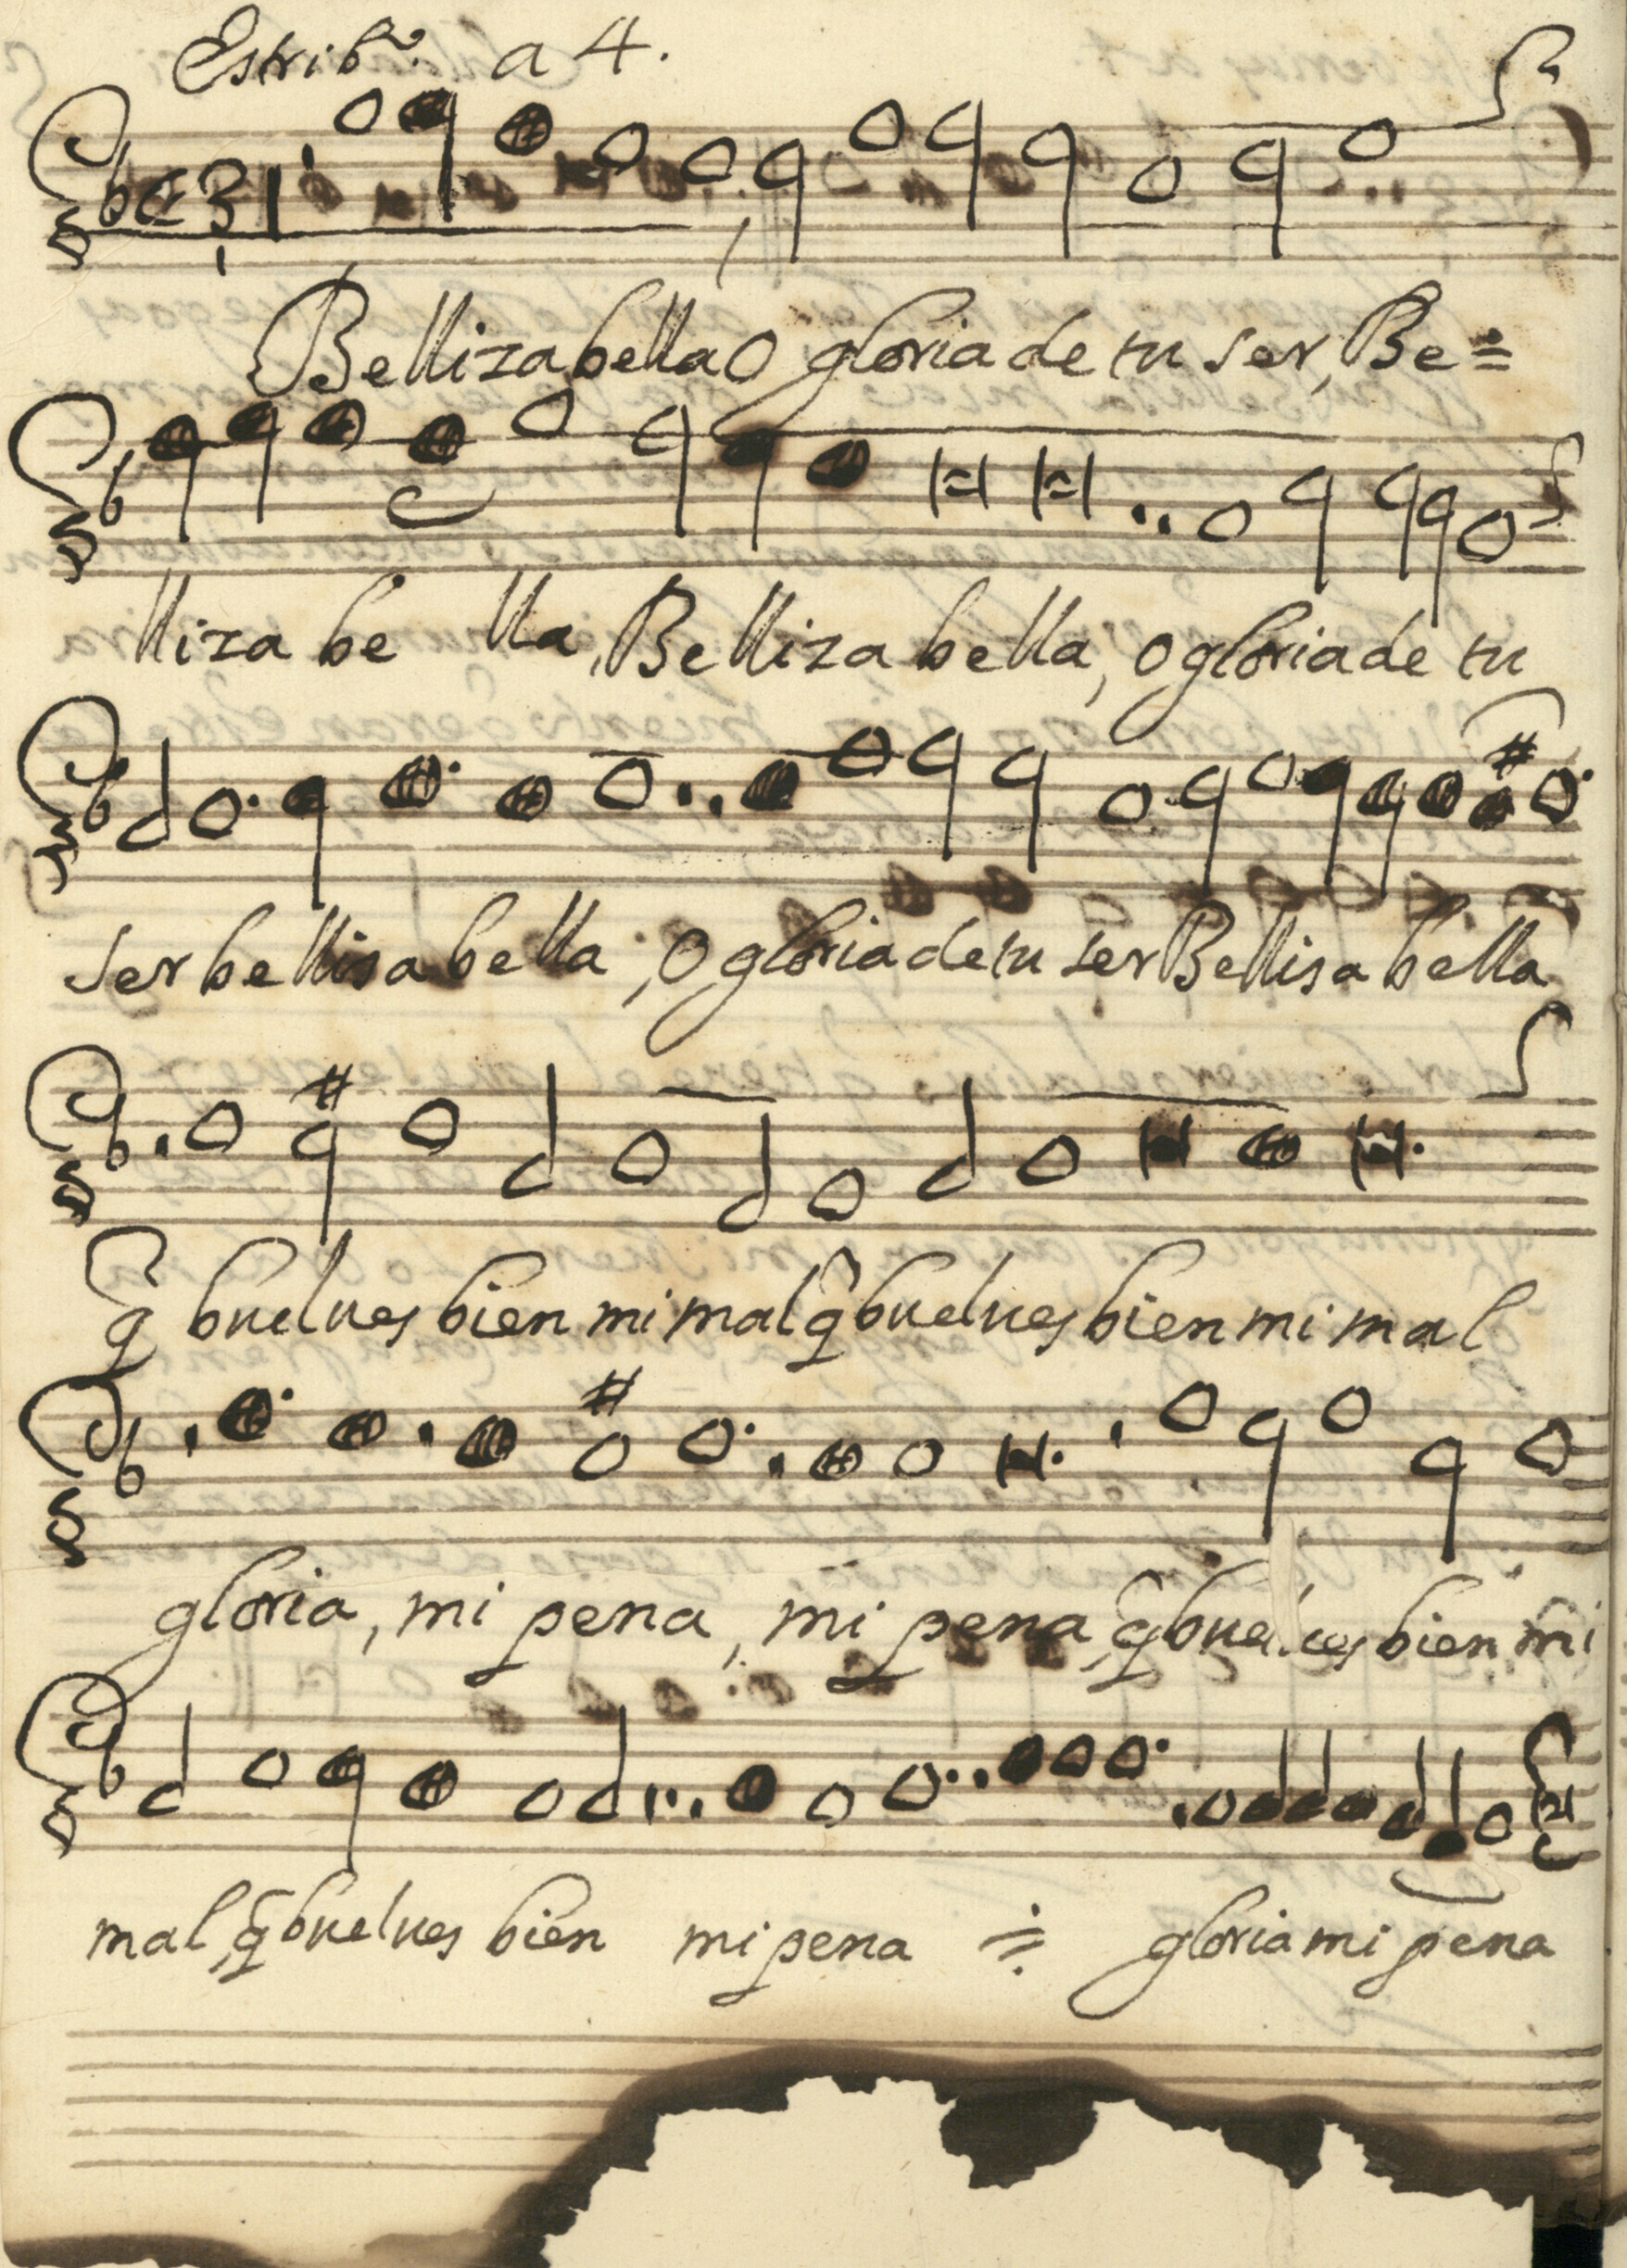 Estribo. a 4.
Belliza bella O gloria de tu ser, Be=
lliza be lla, Belliza bella, O gloria de tu
ser bellisa bella, O gloria de tu ser Bellisa bella
q̃ buelues bien mi mal q̃ buelues bien mi mal
gloria, mi pena, mi pena, q̃ buelues bien mi
mal, q̃ buelues bien mi pena gloria mi pena